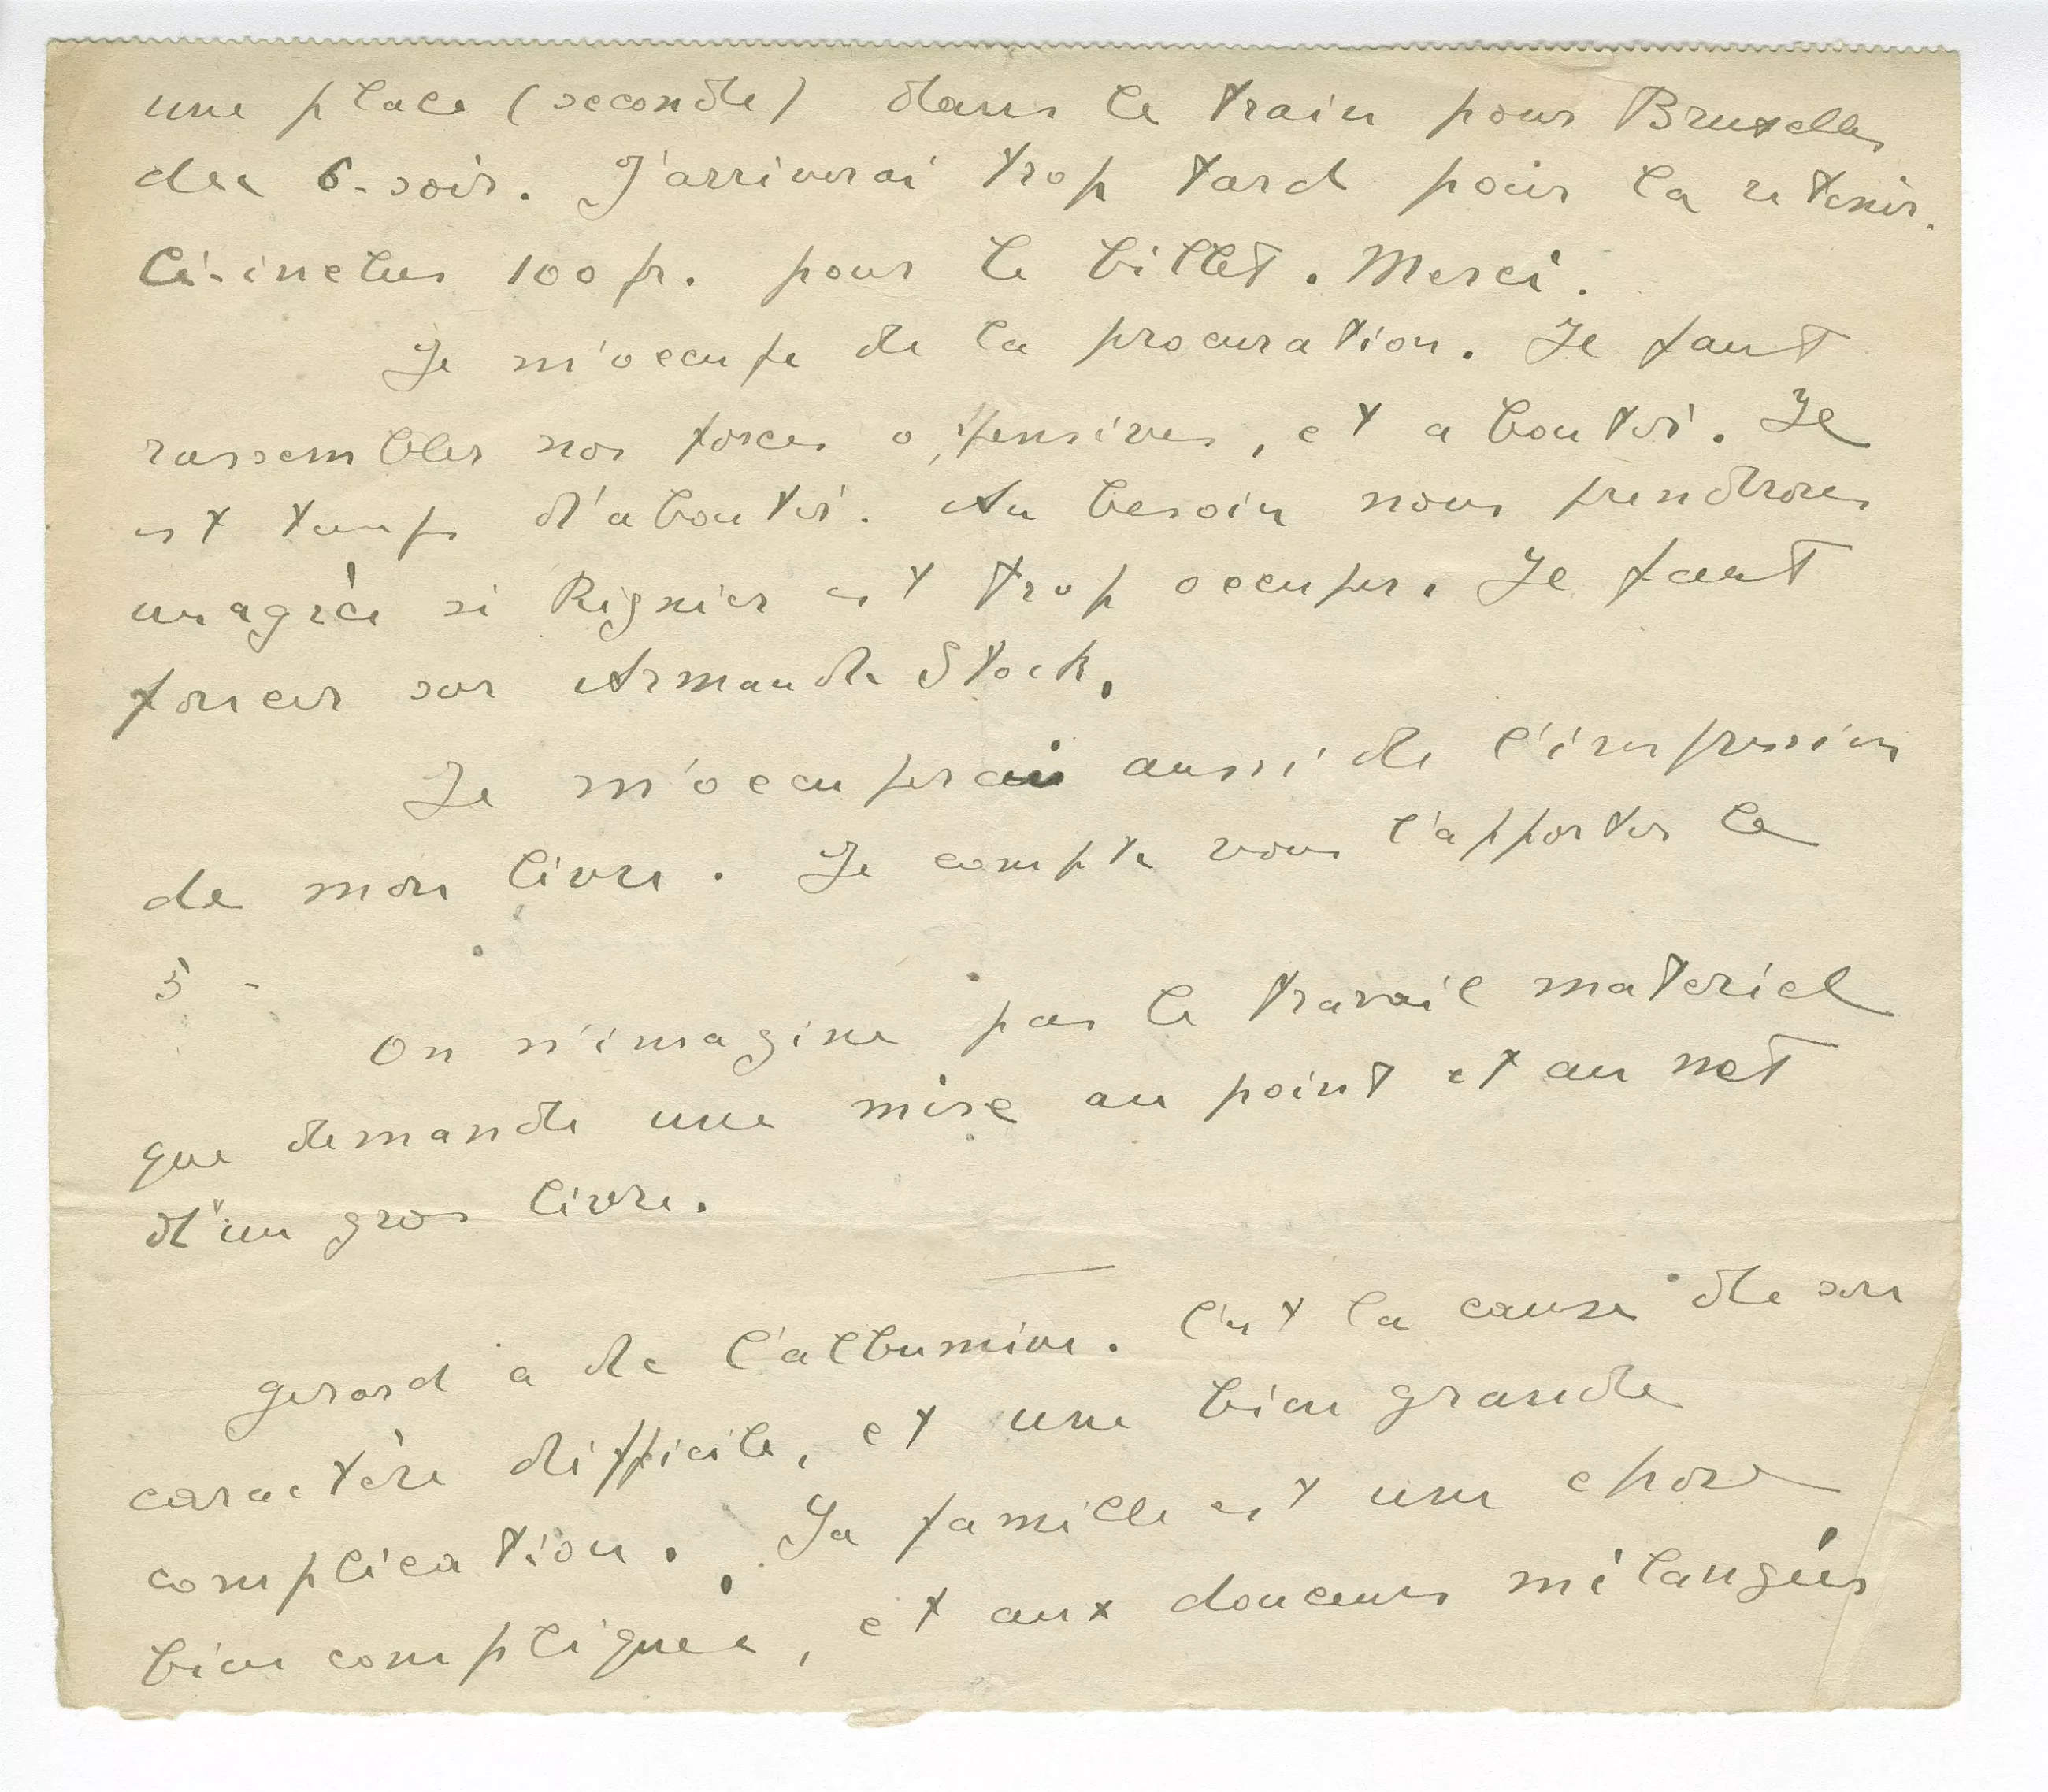 une place (seconde) dans le train pour Bruxelles
des 6 - soir. J'arriverai trop tard pour la retenir.
Ci-inclus 100 fr. pour le billet. Merci.
Je m'occupe de la procuration. Il faut
rassembler nos forces offensives, et aboutir. Il
est temps d'aboutir. Au besoin nous prendrons
un agréé si Régnier est trop occuper. Il faut
foncer sur Armande Stock.
Je m'occuperai aussi de l'impression
de mon livre. Je compte vous l'apporter le
5 -
On n'imagine pas le travail materiel
que demande une mise au point et au net
d'un gros livre.
Gerard a de l'albumine. C'est la cause de son
caractère difficile, et une bien grande
complication. Sa famille est une chose
bien compliquée, et aux douceurs mélangées